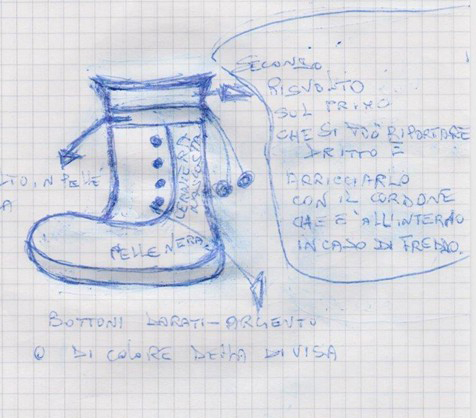 SECONDO
RISVOLTO
SUL PRIMO
CHE SI PUÒ RIPORTARE
DRITTO E
ARRICCIARLO
CON IL CORDONE
CHE E' ALL'INTERNO
IN CASO DI FREDDO.
LTO, IN PELLE
A
CERNIERA
NASCOSTA
PELLE NERA.
BOTTONI DORATI-ARGENTO
O DI COLORE DELLA DIVISA